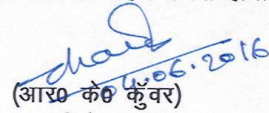 04.06.2016
(आर0 के0 कुँवर)